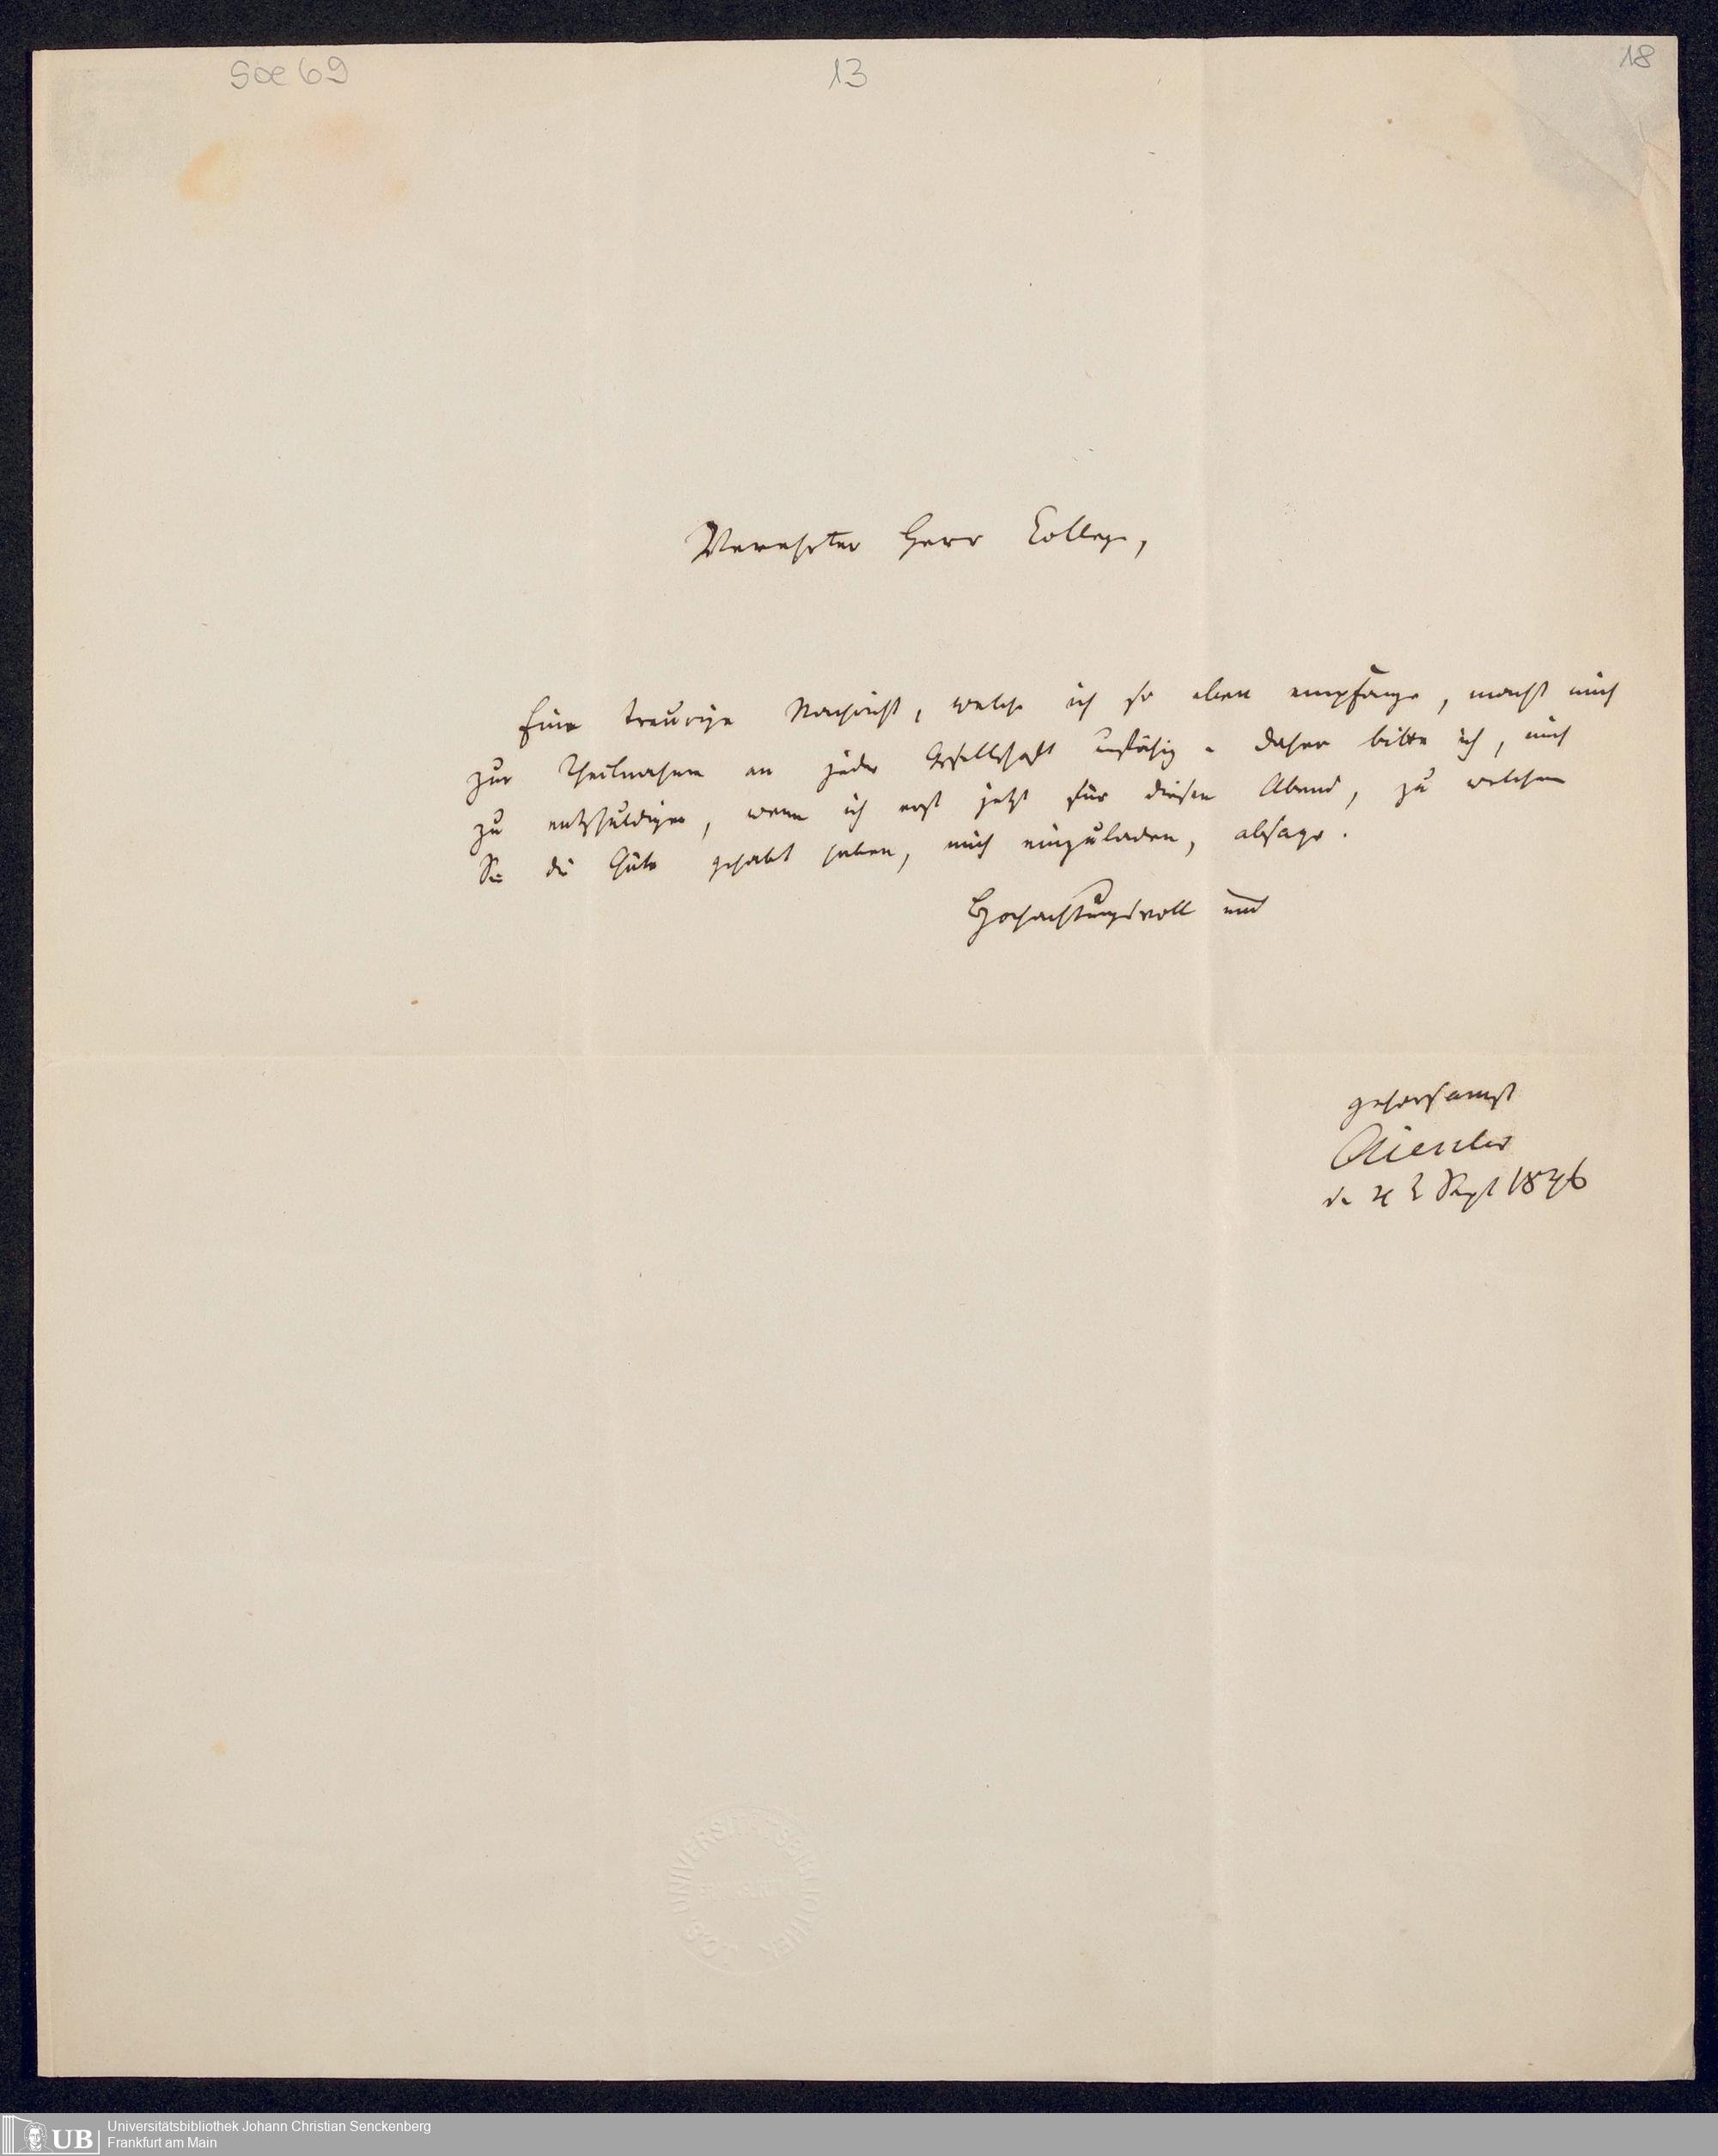 Soe 69
13
18
Verehrter Herr College,
Eine traurige Nachricht, welche ich so eben empfange, macht mich
zur Theilnahme an jeder Gesellschaft unfähig. daher bitte ich, mich
zu entschuldigen, wenn ich erst jetzt für diesen Abend, zu welchem
Sie die Güte gehabt haben, mich einzuladen, absage.
Hochachtungsvoll und
gehorsamst
Sept 1846
J.C.S. UNIVERSITÄTSBIBLIOTHEK
UB
Universitätsbibliothek Johann Christian Senckenberg
Frankfurt am Main